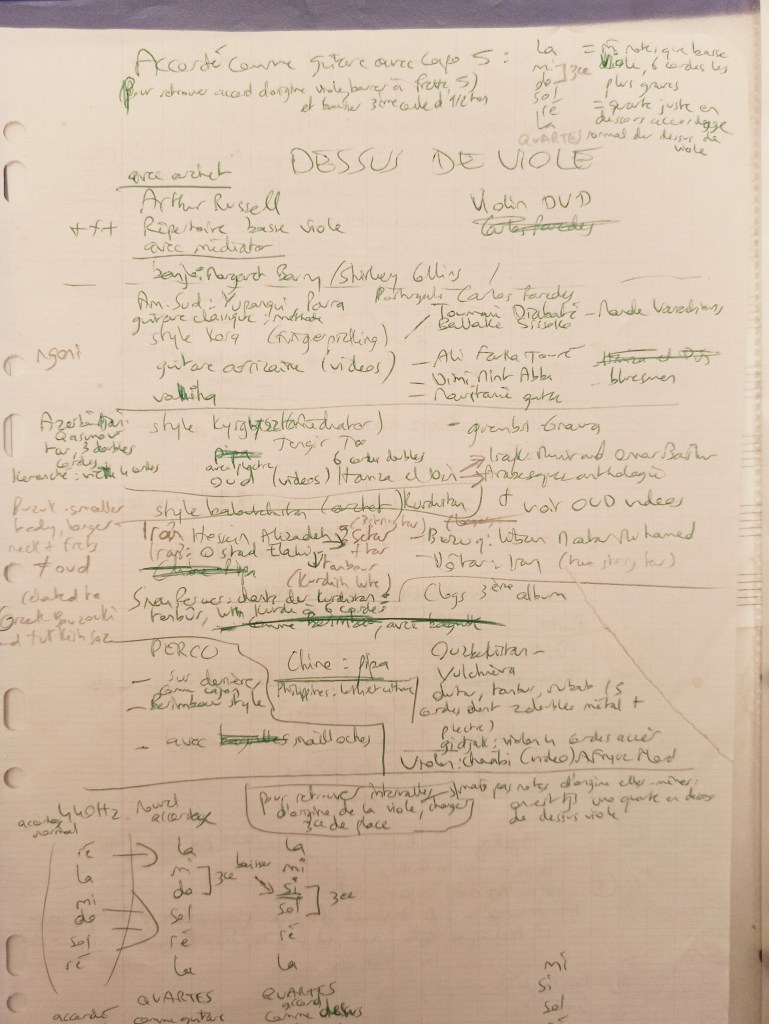 Accordé comme guitare avec capo 5 :
(Pour retrouver accord d'origine viole, barrer à frette 5)
et baisser 3ème corde d'1/2 ton
La = m̂ notes que basse
mi viole, 6 cordes les
do ] 3ce plus graves
sol
ré = quarte juste en
La dessous accordage
QUARTES normal du dessus de
viole
DESSUS DE VIOLE
avec archet
Arthur Russell Violin DVD
+++ Répertoire basse viole Carlos Paredes
avec médiator
banjo: Margaret Barry / Shirley Collins /
Am. Sud : Yupanqui, Parra Portugal: Carlos Paredes
guitare classique : méthode
style Kora (fingerpicking) / Toumani Diabaté - Mande Variations
Ballaké Sissoko
ngoni
guitare africaine (videos) - Ali Farka Touré
- Dimi Mint Abba - bluesmen
valiha - Mauritanie guitare
Azerbaïdjan:
Qasimov
tar, 3 doubles
cordes
Kemanche : vièle 4 cordes
style Kyrgyzstan (médiator) - guembri Gnawa
Tengir Too
pipa 6 cordes doubles
avec plectre
oud (videos) Hamza el Din Irak: Munir and Omar Bashir
Arabesques anthologie
style baloutchistan (archet) Kurdistan + voir OUD videos
Buzuk - smaller
body, longer
neck + frets
≠ oud
related to
Greek Bouzouki
and turkish saz
Iran Hossein Alizadeh Setar
+ tar
Iran: Ostad Elahi tanbour
(Kurdish lute)
Chine Pipa
- Buzuq : Matar Muhamed
- Dôtar : Iran (two string tar)
Sivan Perwer : chants du Kurdistan =
tanbûr, luth Kurde à 6 cordes
Clogs 3ème album
comme Berimbau, avec baguette
PERCU
- sur derrière
comme cajon
- Berimbau style
- avec baguettes mailloches
Chine : pipa
Philippines : kuthet culture
Ouzbekistan -
Yulchieva
dutar, tanbur, rubab (5
cordes dont 2 doubles métal +
plectre)
gidjak : violon 4 cordes accér
Violon : chaabi (video) Afrique Nord
pour retrouver intervalles
d'origine de la viole, changer
3ce de place
mais pas notes d'origine elles-mêmes:
on est tjs une quarte en dessous
de dessus viole
440Hz
accordage
normal
ré
La
mi
do
sol
ré
accordé
Nouvel
accordage
La
mi
do ] 3ce
sol
ré
La
QUARTES
comme guitare
La
baisser mi
si
sol ] 3ce
ré
La
QUARTES
accord
comme dessus
mi
si
sol
ré